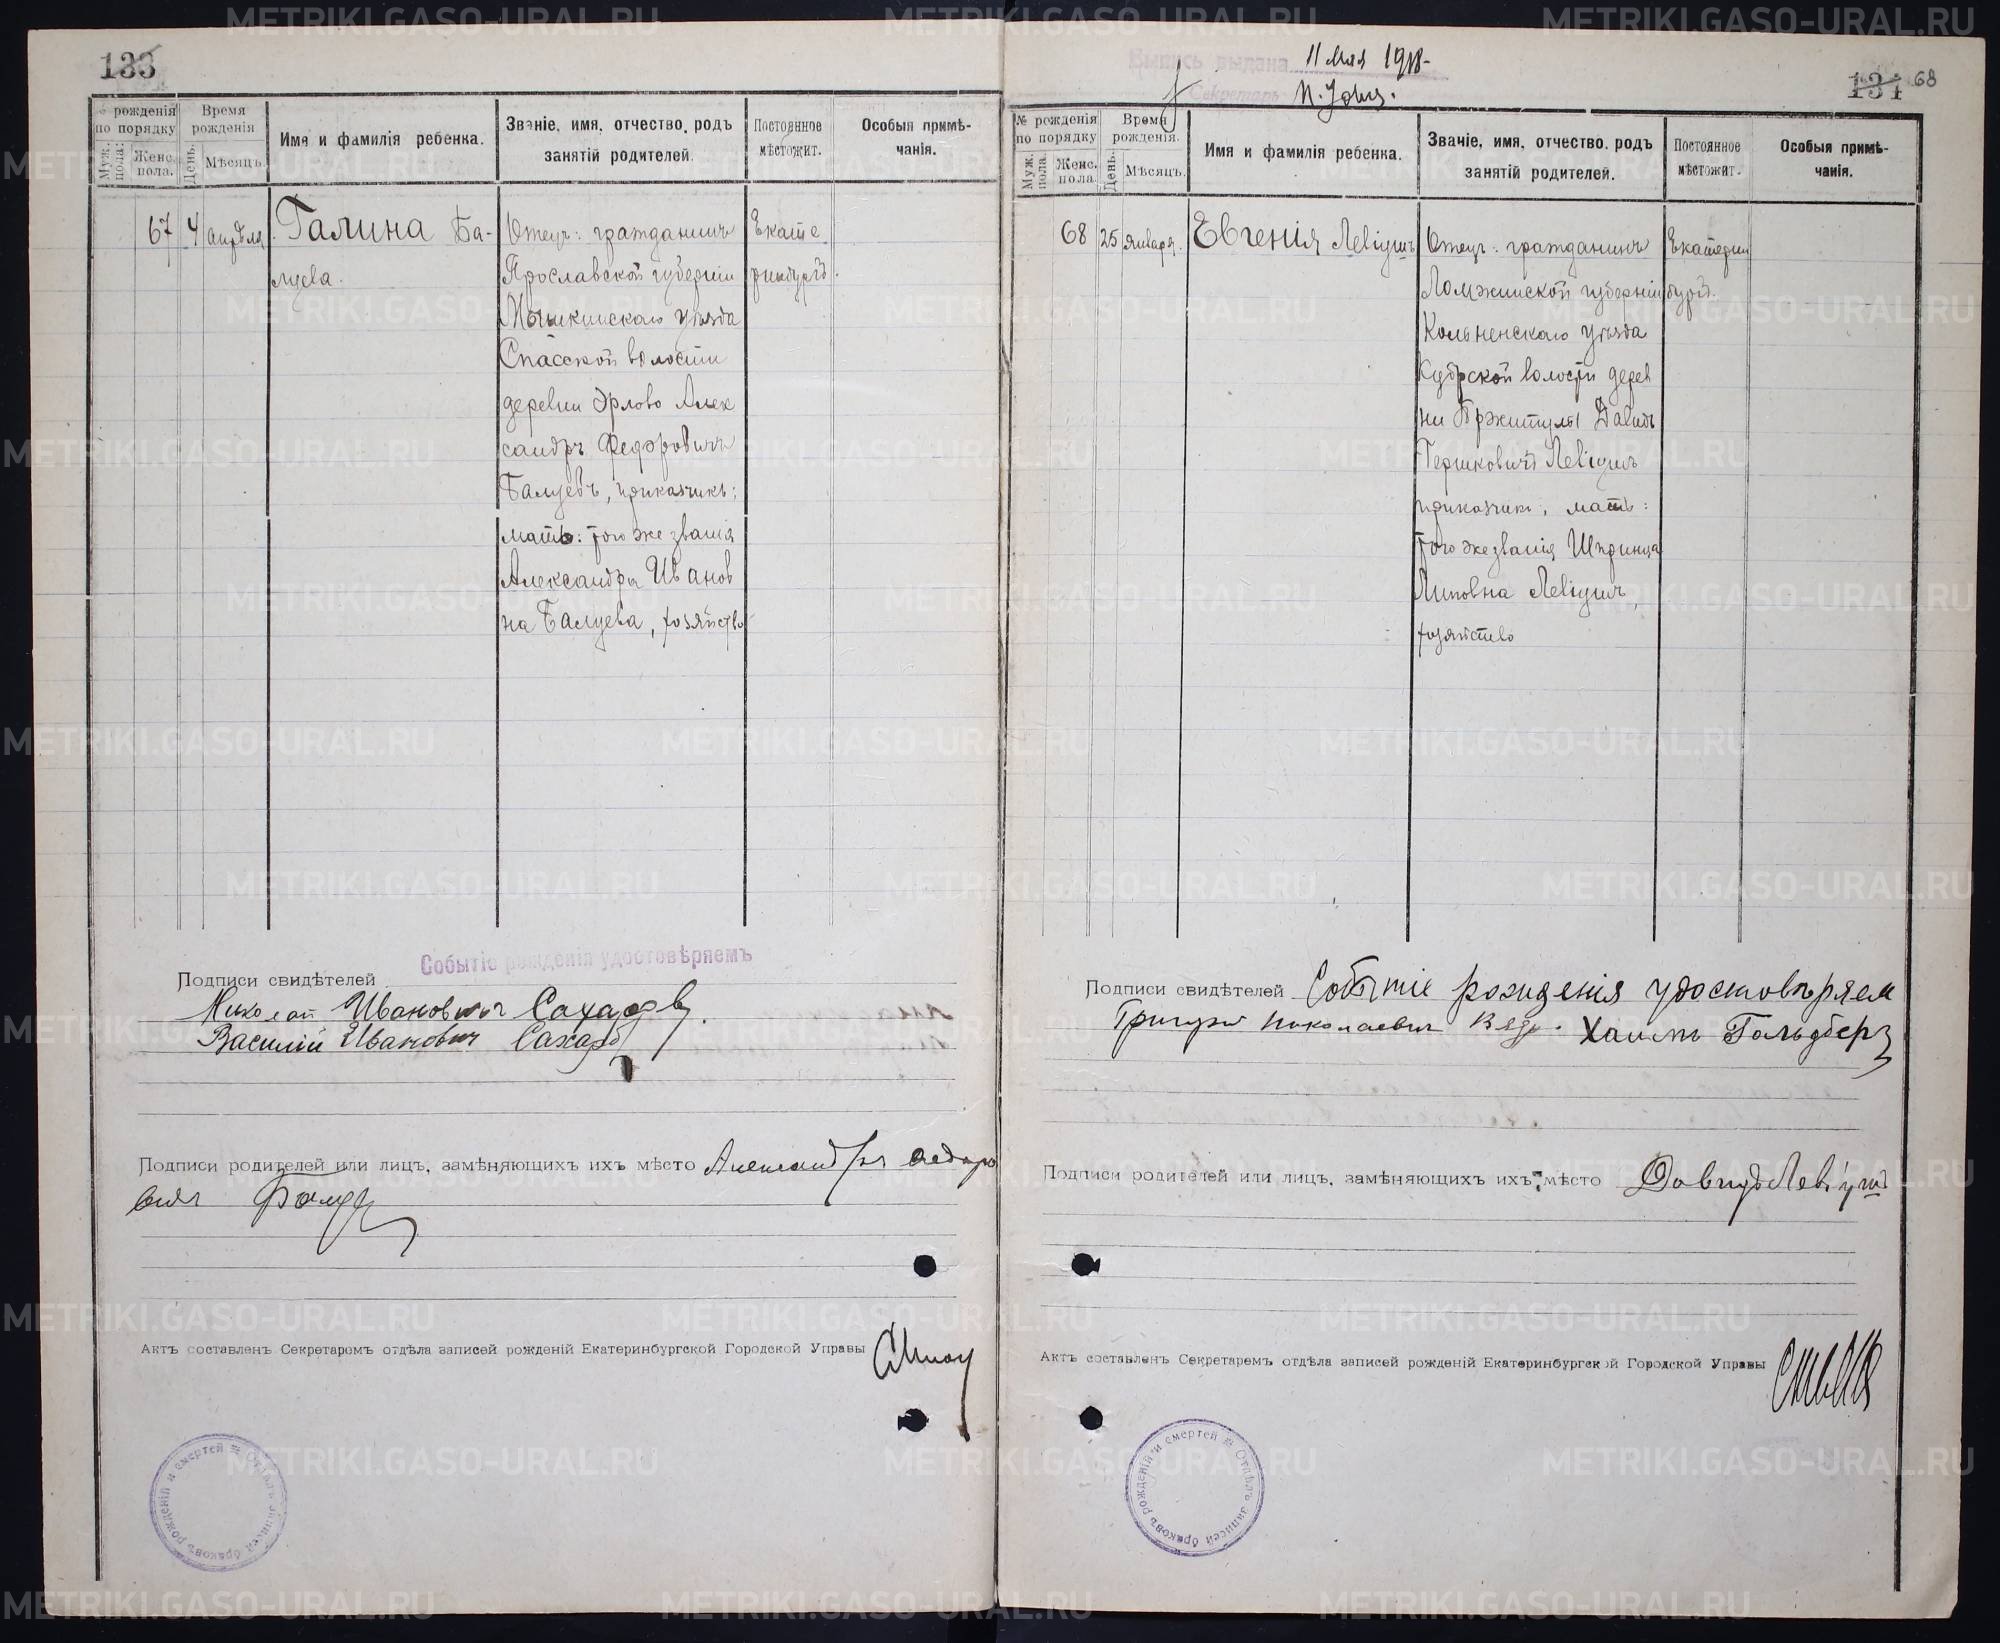 133
№ рожденія по порядку
Муж. пола.
Женс. пола.
Время рожденія
День.
Мѣсяцъ.
Имя и фамилія ребенка.
Званіе, имя, отчество, родъ занятій родителей.
Постоянное мѣстожит.
Особыя примѣчанія.
67
4
апрѣля
Галина Ба-
луева.
Отецъ: гражданинъ
Ярославской губерніи
Мышкинскаго уѣзда
Спасской волости
деревни Орлово Алек
сандръ Федоровичъ
Балуевъ, приказчикъ;
мать: того же званія
Александра Иванов
на Балуева, хозяйство
Екате
ринбургъ.
Событіе рожденія удостовѣряемъ
Подписи свидѣтелей
Николай Ивановичъ Сахаровъ.
Василій Ивановичъ Сахаровъ
Подписи родителей или лицъ, замѣняющихъ ихъ мѣсто Александръ Федоро
вич Балуев
Актъ составленъ Секретаремъ отдѣла записей рожденій Екатеринбургской Городской Управы
Отдѣлъ записей браковъ рожденій и смертей
Выпись выдана 11 Мая 1918-
Секретарь
134 68
№ рожденія по порядку
Муж. пола.
Женс. пола.
Время рожденія.
День.
Мѣсяцъ.
Имя и фамилія ребенка.
Званіе, имя, отчество, родъ занятій родителей.
Постоянное мѣстожит.
Особыя примѣчанія.
68
25
января.
Евгенія Левіушъ
Отецъ: гражданинъ
Ломжинской губерніи
Кольненскаго уѣзда
Кубрской волости дерев
ни Пржитулы Давидъ
Гершковичъ Левіушъ
приказчикъ; мать:
того же званія Шпринца
Липовна Левіушъ,
хозяйство
Екатерин
бургъ.
Подписи свидѣтелей Событіе рожденія удостовѣряем
Григорій Николаевич Хаимъ Гольдберг
Подписи родителей или лицъ, замѣняющихъ ихъ мѣсто Давидъ Левіуш
Актъ составленъ Секретаремъ отдѣла записей рожденій Екатеринбургской Городской Управы
Отдѣлъ записей браковъ рожденій и смертей
METRIKI.GASO-URAL.RU